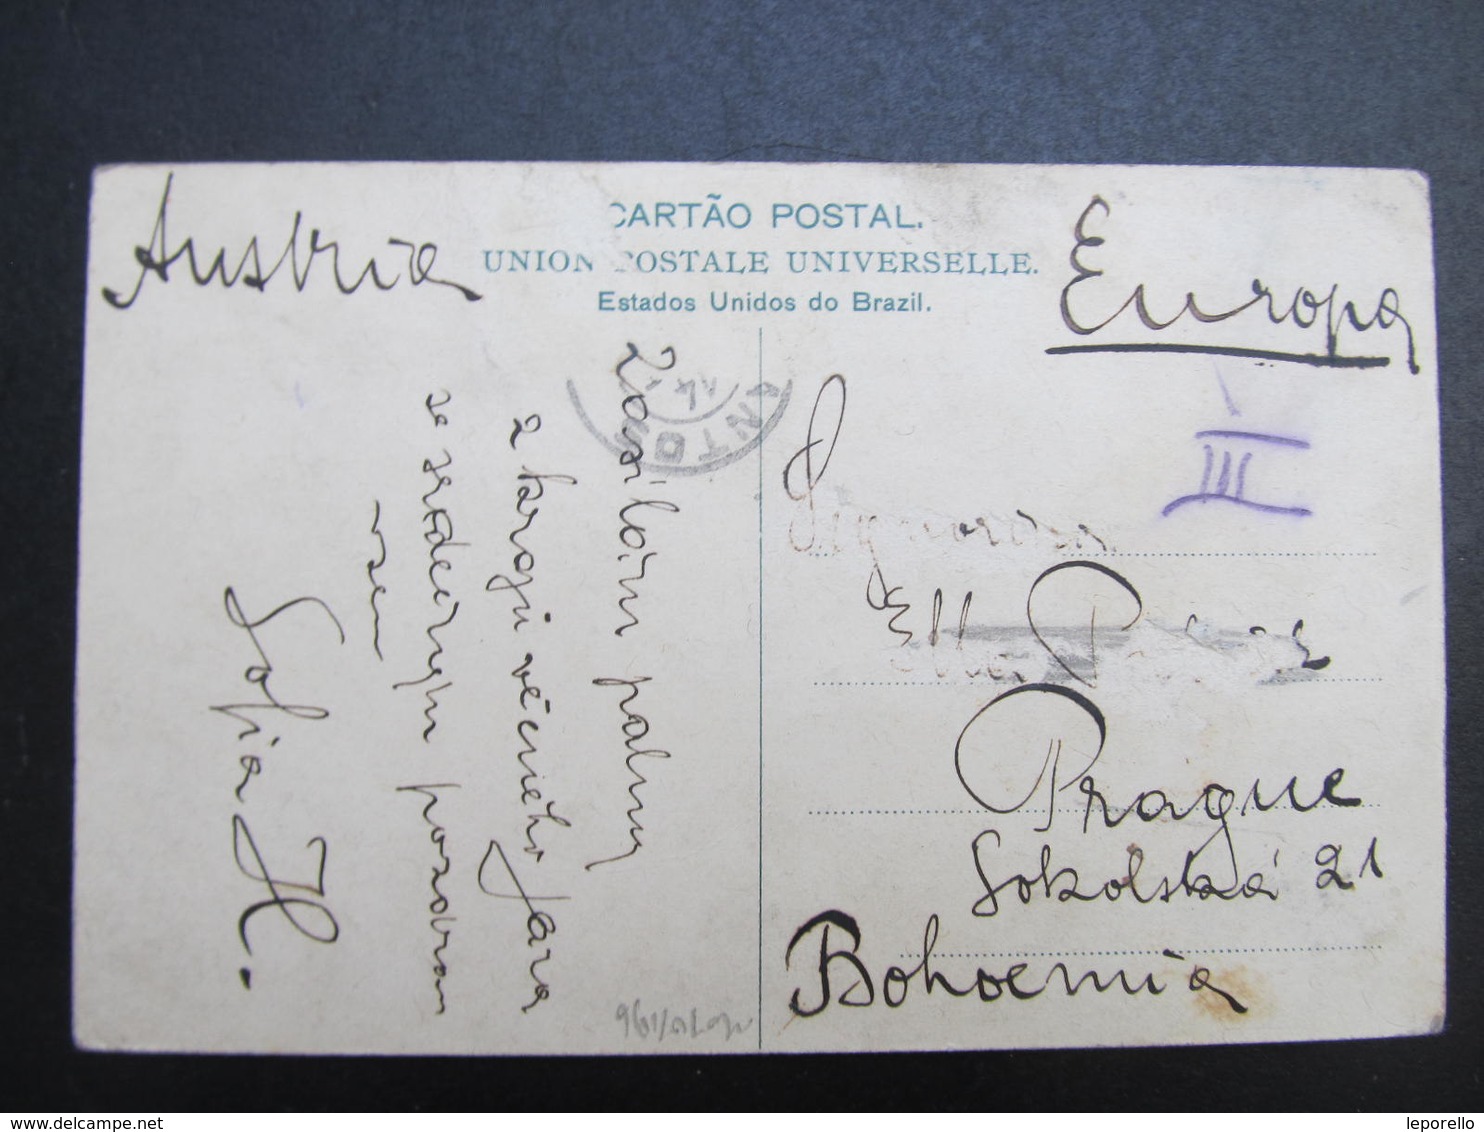 CARTÃO POSTAL.
UNION POSTALE UNIVERSELLE.
Estados Unidos do Brazil.
Austria
Europa
III
ANTOS
Zasílám palmy
z kraju věčného jara
se srdečným pozdravem
všem
Sofia H.
Prague
Sokolská 21
Bohoemia
delcampe.net
leporello